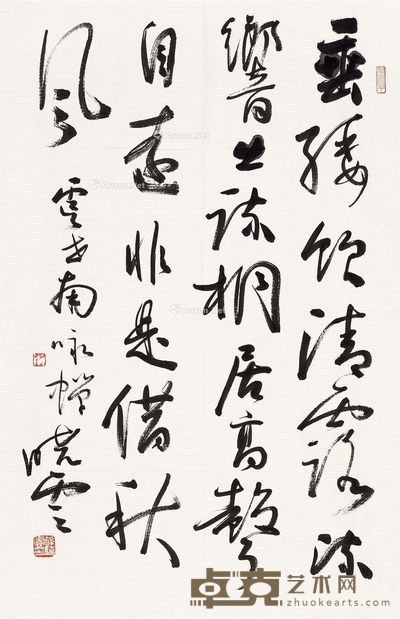 垂緌飲清露流
響出疏桐居高聲
自遠非是借秋
風
虞世南咏蟬 曉雲
卓克艺术网
zhuokearts.com